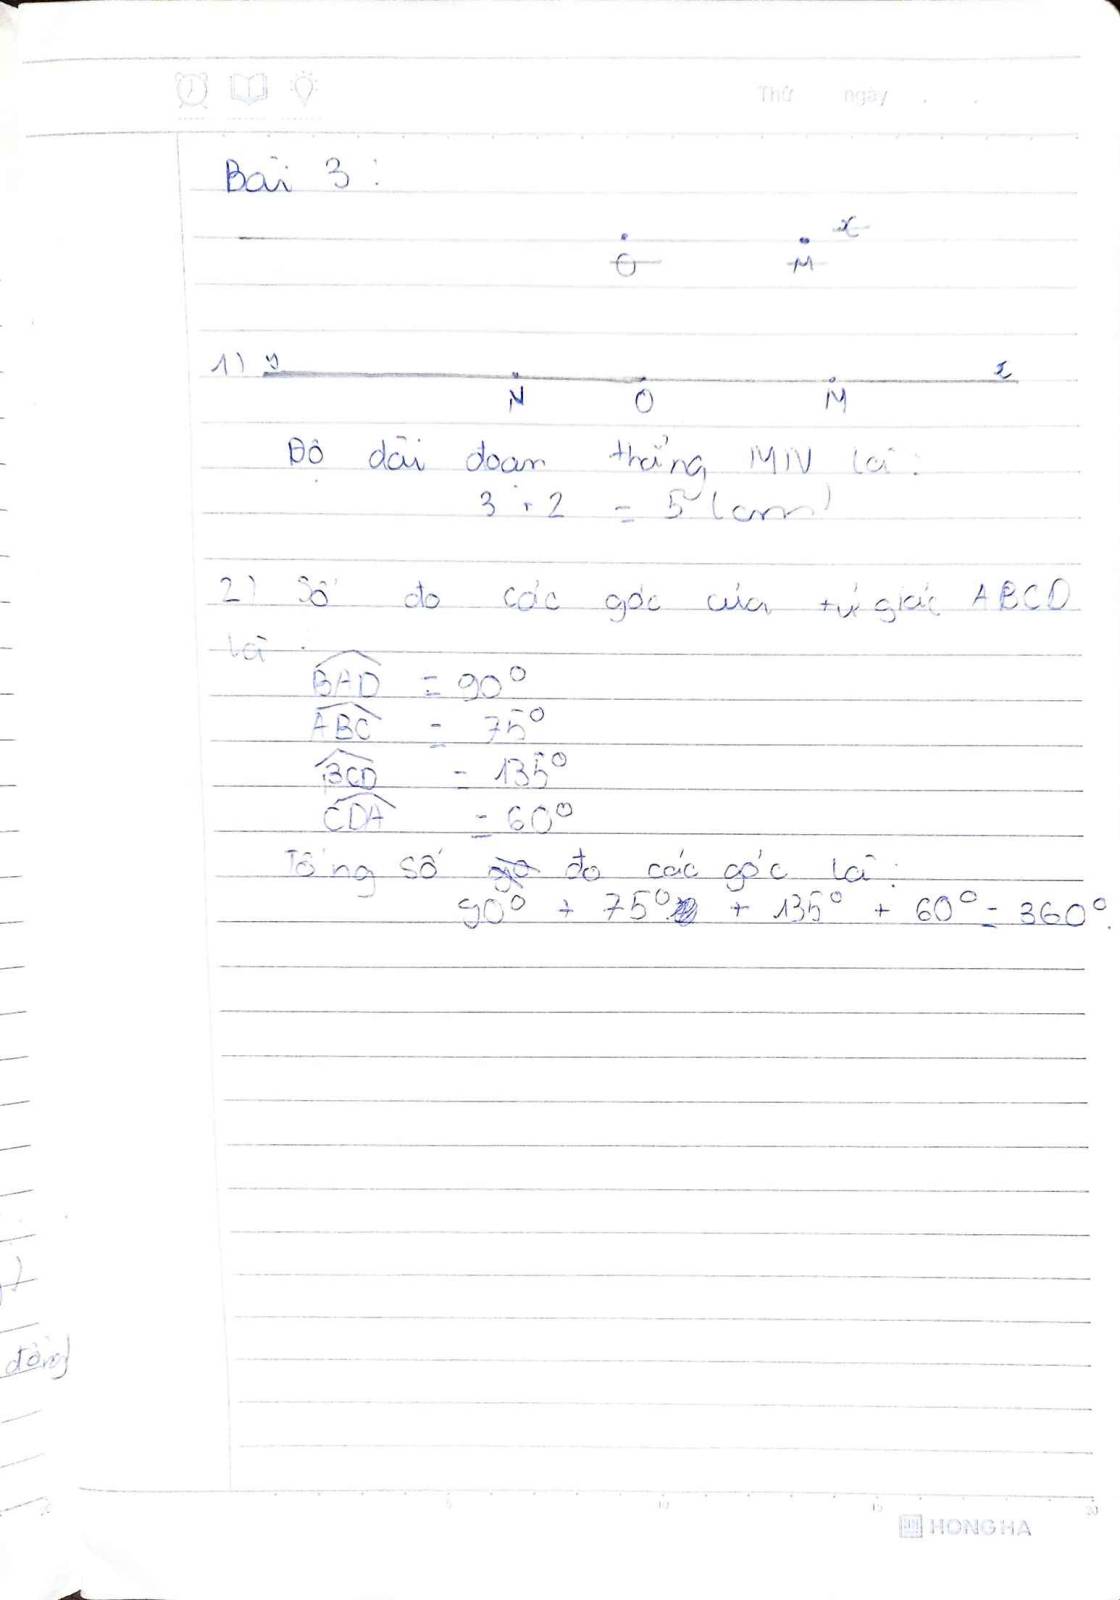 Thứ ngày . .
Bài 3 :
x
O M
1) y x
N O M
Độ dài đoạn thẳng MN là :
3 + 2 = 5 (cm)
2) Số đo các góc của tứ giác ABCD
là :
BAD = 90°
ABC = 75°
BCD = 135°
CDA = 60°
Tổng số đo các góc là :
90° + 75° + 135° + 60° = 360°.
5 10 15 20
HONG HA